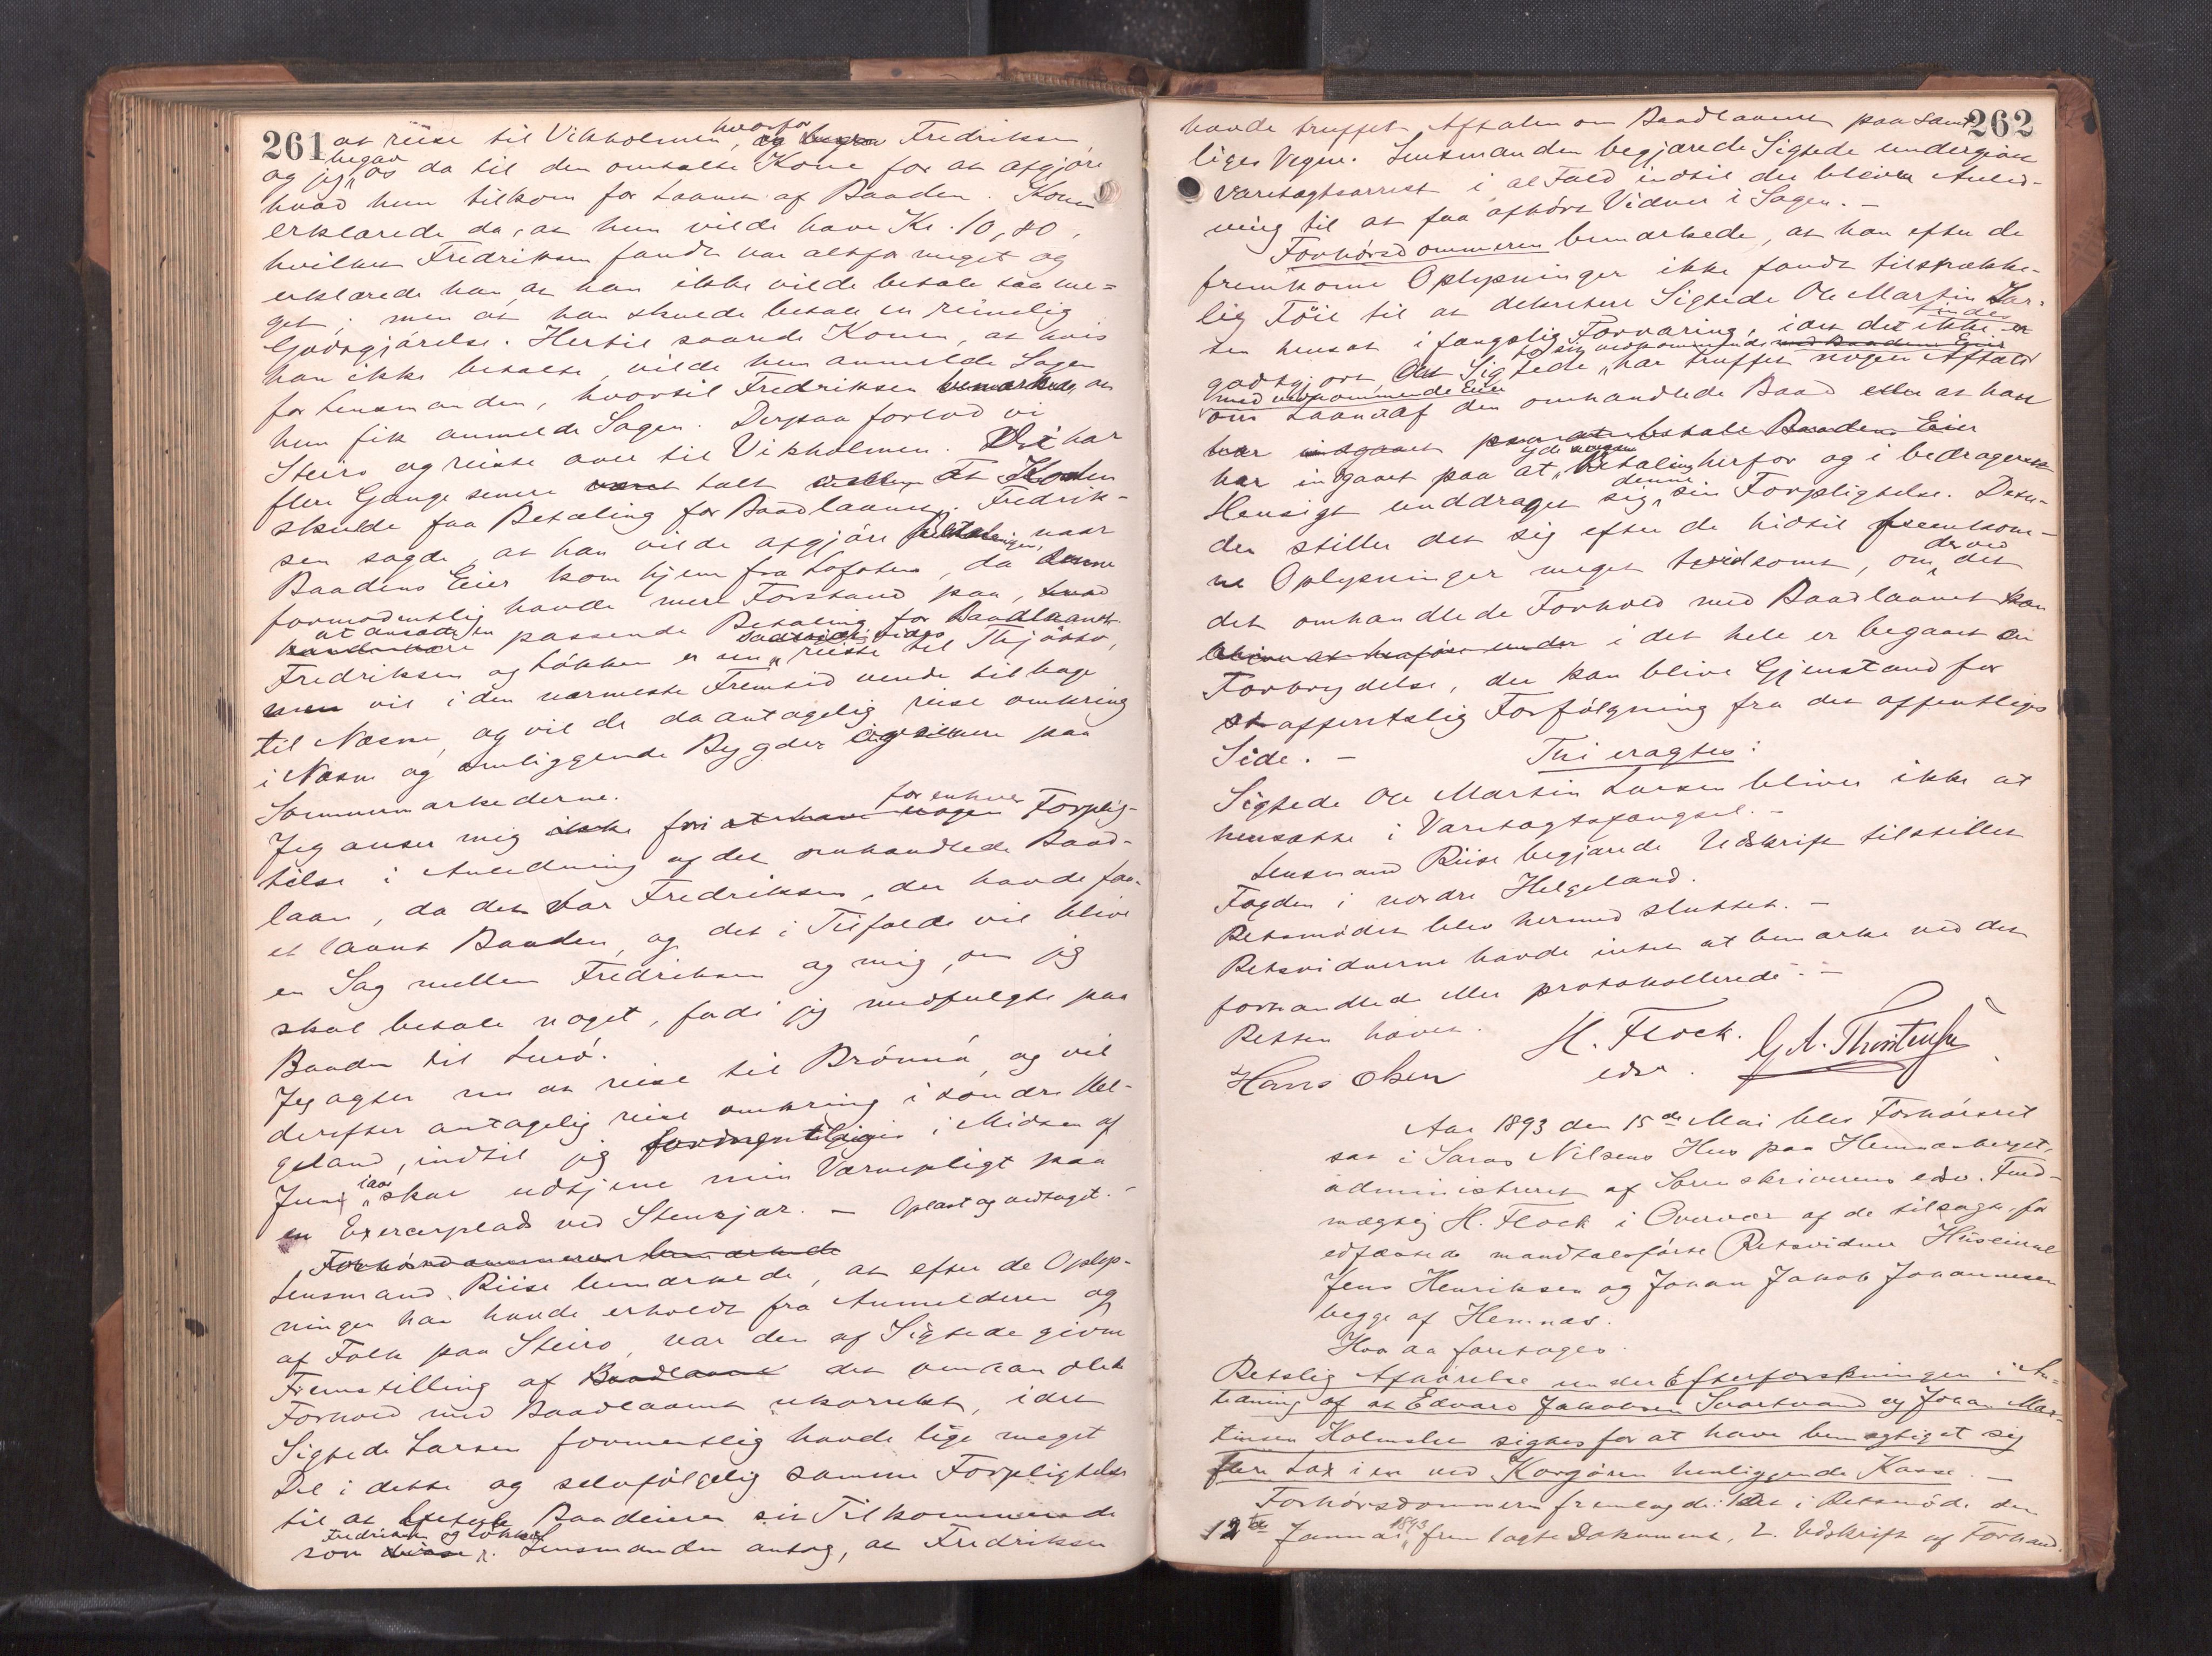 261
at reise til Vikholmen, hvorfor Fredriksen
og jeg begav os da til den omtalte Kone for at afgjøre
hvad hun tilkom for Laanet af Baaden. Konen
erklærede da, at hun vilde have Kr. 10,80,
hvilket Fredriksen fandt var altfor meget og
erklærede han at han ikke vilde betale saa me=
get; men at han skulde betale en rimelig
Godtgjørelse. Hertil svarede Konen, at hvis
han ikke betalte, vilde hun anmelde Sagen
for Lensmanden, hvortil Fredriksen bemærkede, at
hun fik anmelde Sagen. Derpaa forlod vi
Steiro og reiste over til Vikholmen. Vi har
flere Gange senere talt at Konen
skulde faa Betaling for Baadlaanet. Fredrik-
sen sagde, at han vilde afgjøre Betalingen, naar
Baadens Eier kom hjem fra Lofoten, da denne
formodentlig havde mere Forstand paa,
at ansætte en passende Betaling for Baadlaanet.
Fredriksen og Løkken er nu reiste til Thjøtto,
men vil i den nærmeste Fremtid vende tilbage
til Næsne, og vil de da antagelig reise omkring
i Næsne og omliggende Bygder paa
Sommermarkederne.
Jeg anser mig fri for enhver Forplig-
telse i Anledning af det omhandlede Baad-
laan, da det var Fredriksen, der havde faa-
et laant Baaden, og det i Tilfælde vil blive
en Sag mellem Fredriksen og mig, om jeg
skal betale noget, fordi jeg medfulgte paa
Baaden til Lurø.
Jeg agter nu at reise til Brønnø, og vil
derefter antagelig reise omkring i søndre Hel-
geland, indtil jeg i Midten af
Juni iaar skal udtjene min Værnepligt paa
en Exercerplads ved Stenkjær. — Oplæst og vedtaget. —
Forhørsdommeren bemærkede
Lensmand Riise bemærkede, at efter de Oplys-
ninger han havde erholdt fra Anmelderen og
af Folk paa Steiro, var den af Sigtede givne
Fremstilling af det omhandlede
Forhold med Baadlaanet ukorrekt, idet
Sigtede Larsen formentlig havde lige meget
Del i dette og selvfølgelig samme Forpligtelse
til at betale Baadeieren sit Tilkommende
som Fredriksen og Løkken. Lensmanden antog, at Fredriksen
262
havde truffet Aftalen om Baadlaanet paa samt-
liges Vegne. Lensmanden begjærede Sigtede undergivet
Varetægtsarrest i al Fald indtil der bliver Anled-
ning til at faa afhørt Vidner i Sagen. —
Forhørsdommeren bemærkede, at han efter de
fremkomne Oplysninger ikke fandt tilstrække-
lig Føie til at dekretere Sigtede Ole Martin Lar-
sen hensat i fængslig Forvaring, idet det ikke findes
godtgjort, at Sigtede har truffet nogen Aftale
med vedkommende Eier
om Laanet af den omhandlede Baad eller at han
har indgaaet paa at betale Baadens Eier
har indgaaet paa at yde nogen Betaling herfor og i bedragersk
Hensigt unddraget sig denne sin Forpligtelse. Desu-
den stiller det sig efter de hidtil fremkom-
ne Oplysninger meget tvivlsomt, om der ved det
det omhandlede Forhold med Baadlaanet
i det hele er begaaet en
Forbrydelse, der kan blive Gjenstand for
offentlig Forfølgning fra det offentliges
Side. —
Thi eragtes:
Sigtede Ole Martin Larsen bliver ikke at
hensætte i Varetægtsfængsel. —
Lensmand Riise begjærede Udskrift tilstillet
Fogden i nordre Helgeland.
Retsmødet blev hermed sluttet. —
Retsvidnerne havde intet at bemærke ved det
forhandlede eller protokollerede. —
Retten hævet.
H. Flock.
edsv.
G A. Thorstensen
Hans Olsen
Aar 1893 den 15de Mai blev Forhørsret
sat i Saras Nilsens Hus paa Hemnesberget,
administreret af Sorenskriverens edsv. Fuld-
mægtig H. Flock i Overvær af de tilsagte, for
edfæstede mandtalsførte Retsvidner Huseierne
Jens Henriksen og Johan Jakob Johannesen
begge af Hemnæs.
Hvor da foretoges:
Retslig Afhørelse under Efterforskningen i An-
ledning af at Edvard Jakobsen Svartvand og Johan Mar-
tinsen Holmslet sigtes for at have bemægtiget sig
flere Lax i en ved Korgøren henliggende Kasse. —
Forhørsdommeren fremlagde: 1. det i Retsmøde den
12te Januar 1893 fremlagte Dokument, 2. Udskrift af Forhand.